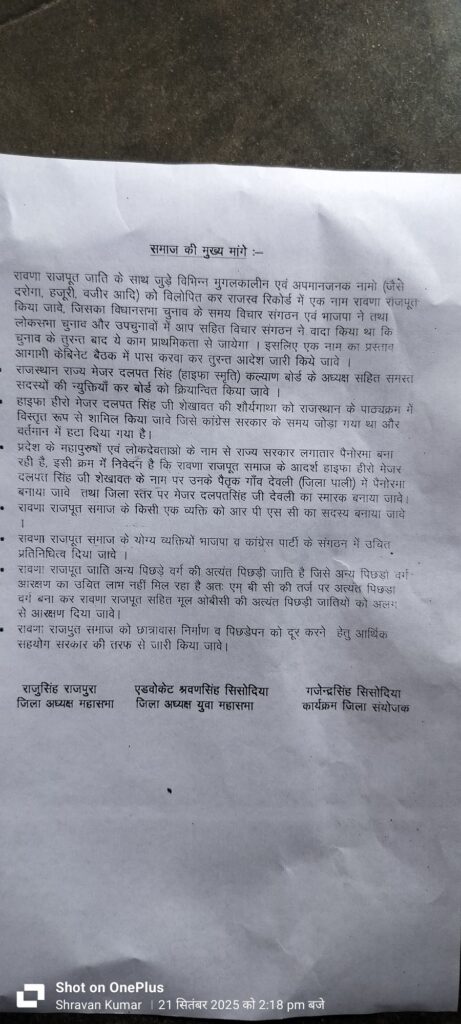 समाज की मुख्य मांगे :–
रावणा राजपूत जाति के साथ जुड़े विभिन्न मुगलकालीन एवं अपमानजनक नामो (जैसे
दरोगा, हजूरी, वजीर आदि) को विलोपित कर राजस्व रिकोर्ड में एक नाम रावणा राजपूत
किया जावे, जिसका विधानसभा चुनाव के समय विचार संगठन एवं भाजपा ने तथा
लोकसभा चुनाव और उपचुनावों में आप सहित विचार संगठन ने वादा किया था कि
चुनाव के तुरन्त बाद ये काम प्राथमिकता से जायेगा । इसलिए एक नाम का प्रस्ताव
आगामी केबिनेट बैठक में पास करवा कर तुरन्त आदेश जारी किये जावे ।
• राजस्थान राज्य मेजर दलपत सिंह (हाइफा स्मृति) कल्याण बोर्ड के अध्यक्ष सहित समस्त
सदस्यों की न्युक्तियाँ कर बोर्ड को क्रियान्वित किया जावे ।
• हाइफा हीरो मेजर दलपत सिंह जी शेखावत की शौर्यगाथा को राजस्थान के पाठ्यक्रम में
विस्तृत रूप से शामिल किया जावे जिसे कांग्रेस सरकार के समय जोड़ा गया था और
वर्तमान में हटा दिया गया है।
• प्रदेश के महापुरुषों एवं लोकदेवताओ के नाम से राज्य सरकार लगातार पैनोरमा बना
रही है, इसी क्रम में निवेदन है कि रावणा राजपूत समाज के आदर्श हाइफा हीरो मेजर
दलपत सिंह जी शेखावत के नाम पर उनके पैतृक गाँव देवली (जिला पाली) में पैनोरमा
बनाया जावे तथा जिला स्तर पर मेजर दलपतसिंह जी देवली का स्मारक बनाया जावे।
• रावणा राजपूत समाज के किसी एक व्यक्ति को आर पी एस सी का सदस्य बनाया जावे
।
• रावणा राजपूत समाज के योग्य व्यक्तियो भाजपा व कांग्रेस पार्टी के संगठन में उचित
प्रतिनिधित्व दिया जावे ।
• रावणा राजपूत जाति अन्य पिछड़े वर्ग की अत्यंत पिछड़ी जाति है जिसे अन्य पिछडा वर्ग
आरक्षण का उचित लाभ नहीं मिल रहा है अतः एम बी सी की तर्ज पर अत्यंत पिछडा
वर्ग बना कर रावणा राजपूत सहित मूल ओबीसी की अत्यंत पिछड़ी जातियों को अलग
से आरक्षण दिया जावे।
• रावणा राजपुत समाज को छात्रावास निर्माण व पिछडेपन को दूर करने हेतु आर्थिक
सहयोग सरकार की तरफ से जारी किया जावे।
राजुसिंह राजपुरा एडवोकेट श्रवणसिंह सिसोदिया गजेन्द्रसिंह सिसोदिया
जिला अध्यक्ष महासभा जिला अध्यक्ष युवा महासभा कार्यक्रम जिला संयोजक
Shot on OnePlus
Shravan Kumar | 21 सितंबर 2025 को 2:18 pm बजे